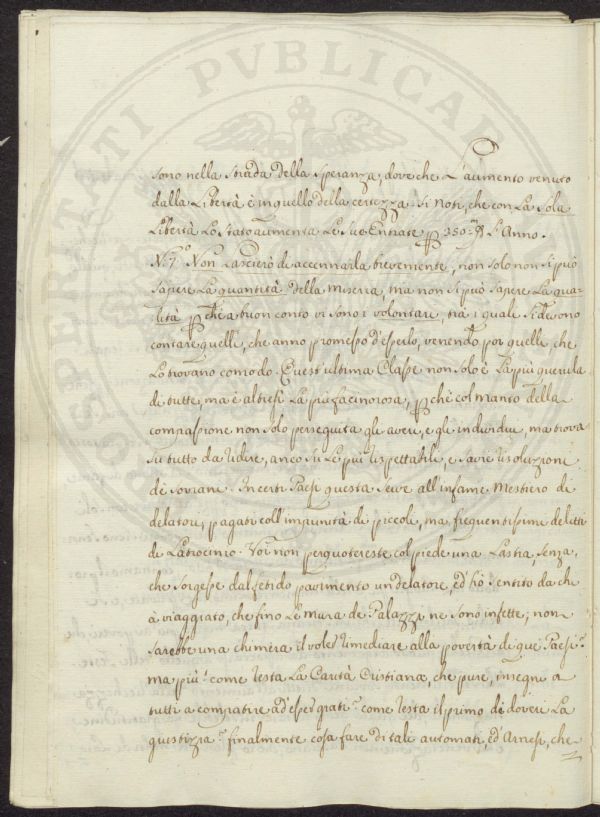 PROSPERITATI PVBLICAE
sono nella strada della speranza, dove che L'aumento venuto
dalla Libertà è in quello della certezza. Si noti, che con La sola
Libertà Lo Stato aumenta Le Sue Entrate 350 L'Anno.
N.º 7.º Non Lascierò di accennarla brevemente, non solo non si può
sapere La quantità della miseria, ma non si può sapere La qua-
lità che a buon conto vi sono i volontari, trà i quali si devono
contare quelli, che anno promesso d'esserlo, venendo poi quelli, che
Lo trovano comodo. Quest'ultima Classe non solo è La più querula
di tutte, ma è altresì La più facinorosa, chè col manto della
compassione non solo perseguita gli averi, e gli individui, ma trova
su tutto da ridire, anco su Le più rispettabili, e sacre risoluzioni
de Sovrani. In certi Paesi questa serve all'infame Mestiero di
delatori, pagati coll'impunità di piccoli, ma frequentissimi delitti
di Latrocinio. Voi non perquotereste col piede una Lastra, senza
che sorgesse dal fetido pavimento un delatore, ed hò sentito da chi
à viaggiato, che fino Le mura de Palazzi ne sono infette; non
sarebbe una chimera il voler rimediare alla povertà di que' Paesi?
ma più: come resta La Carità Cristiana, che pure, insegna a
tutti a compatire ad esser grati? come resta il primo de doveri La
giustizia? finalmente cosa fare di tale automati, ed Arnesi, che